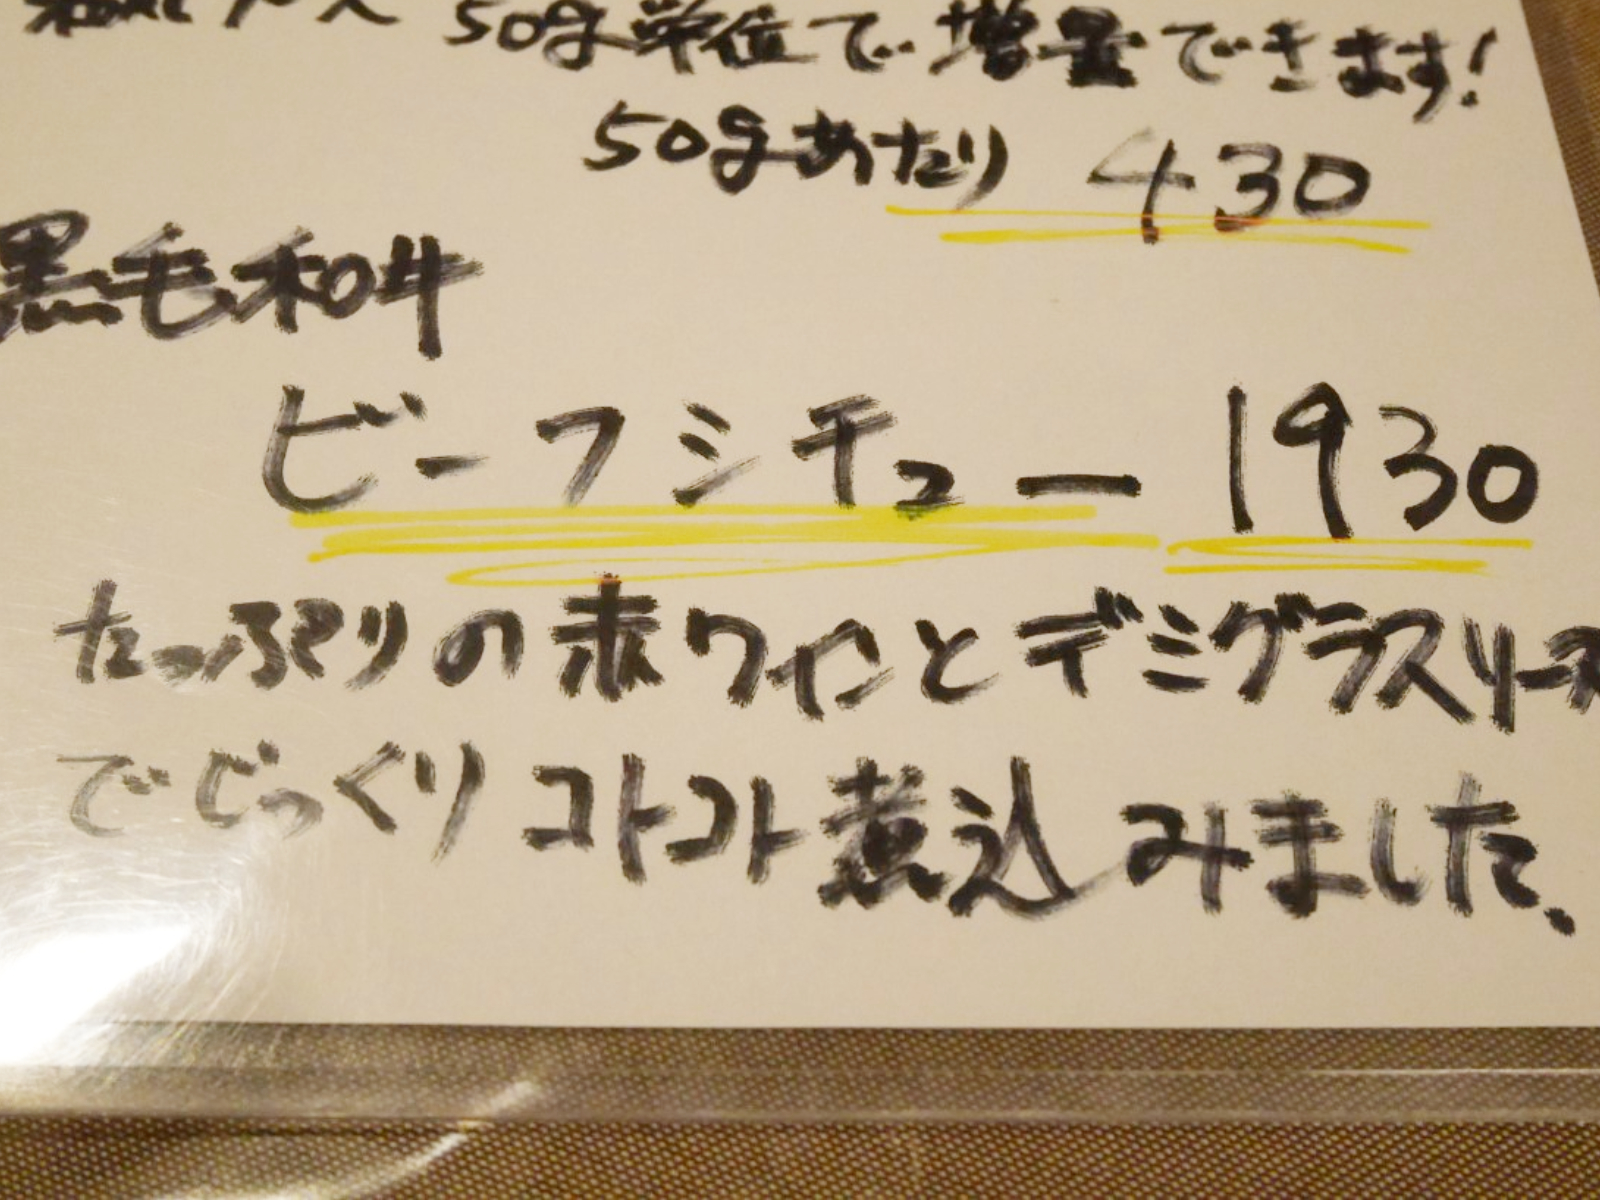 50g単位で増量できます!
50gあたり 430
黒毛和牛
ビーフシチュー 1930
たっぷりの赤ワインとデミグラスソース
でじっくりコトコト煮込みました.